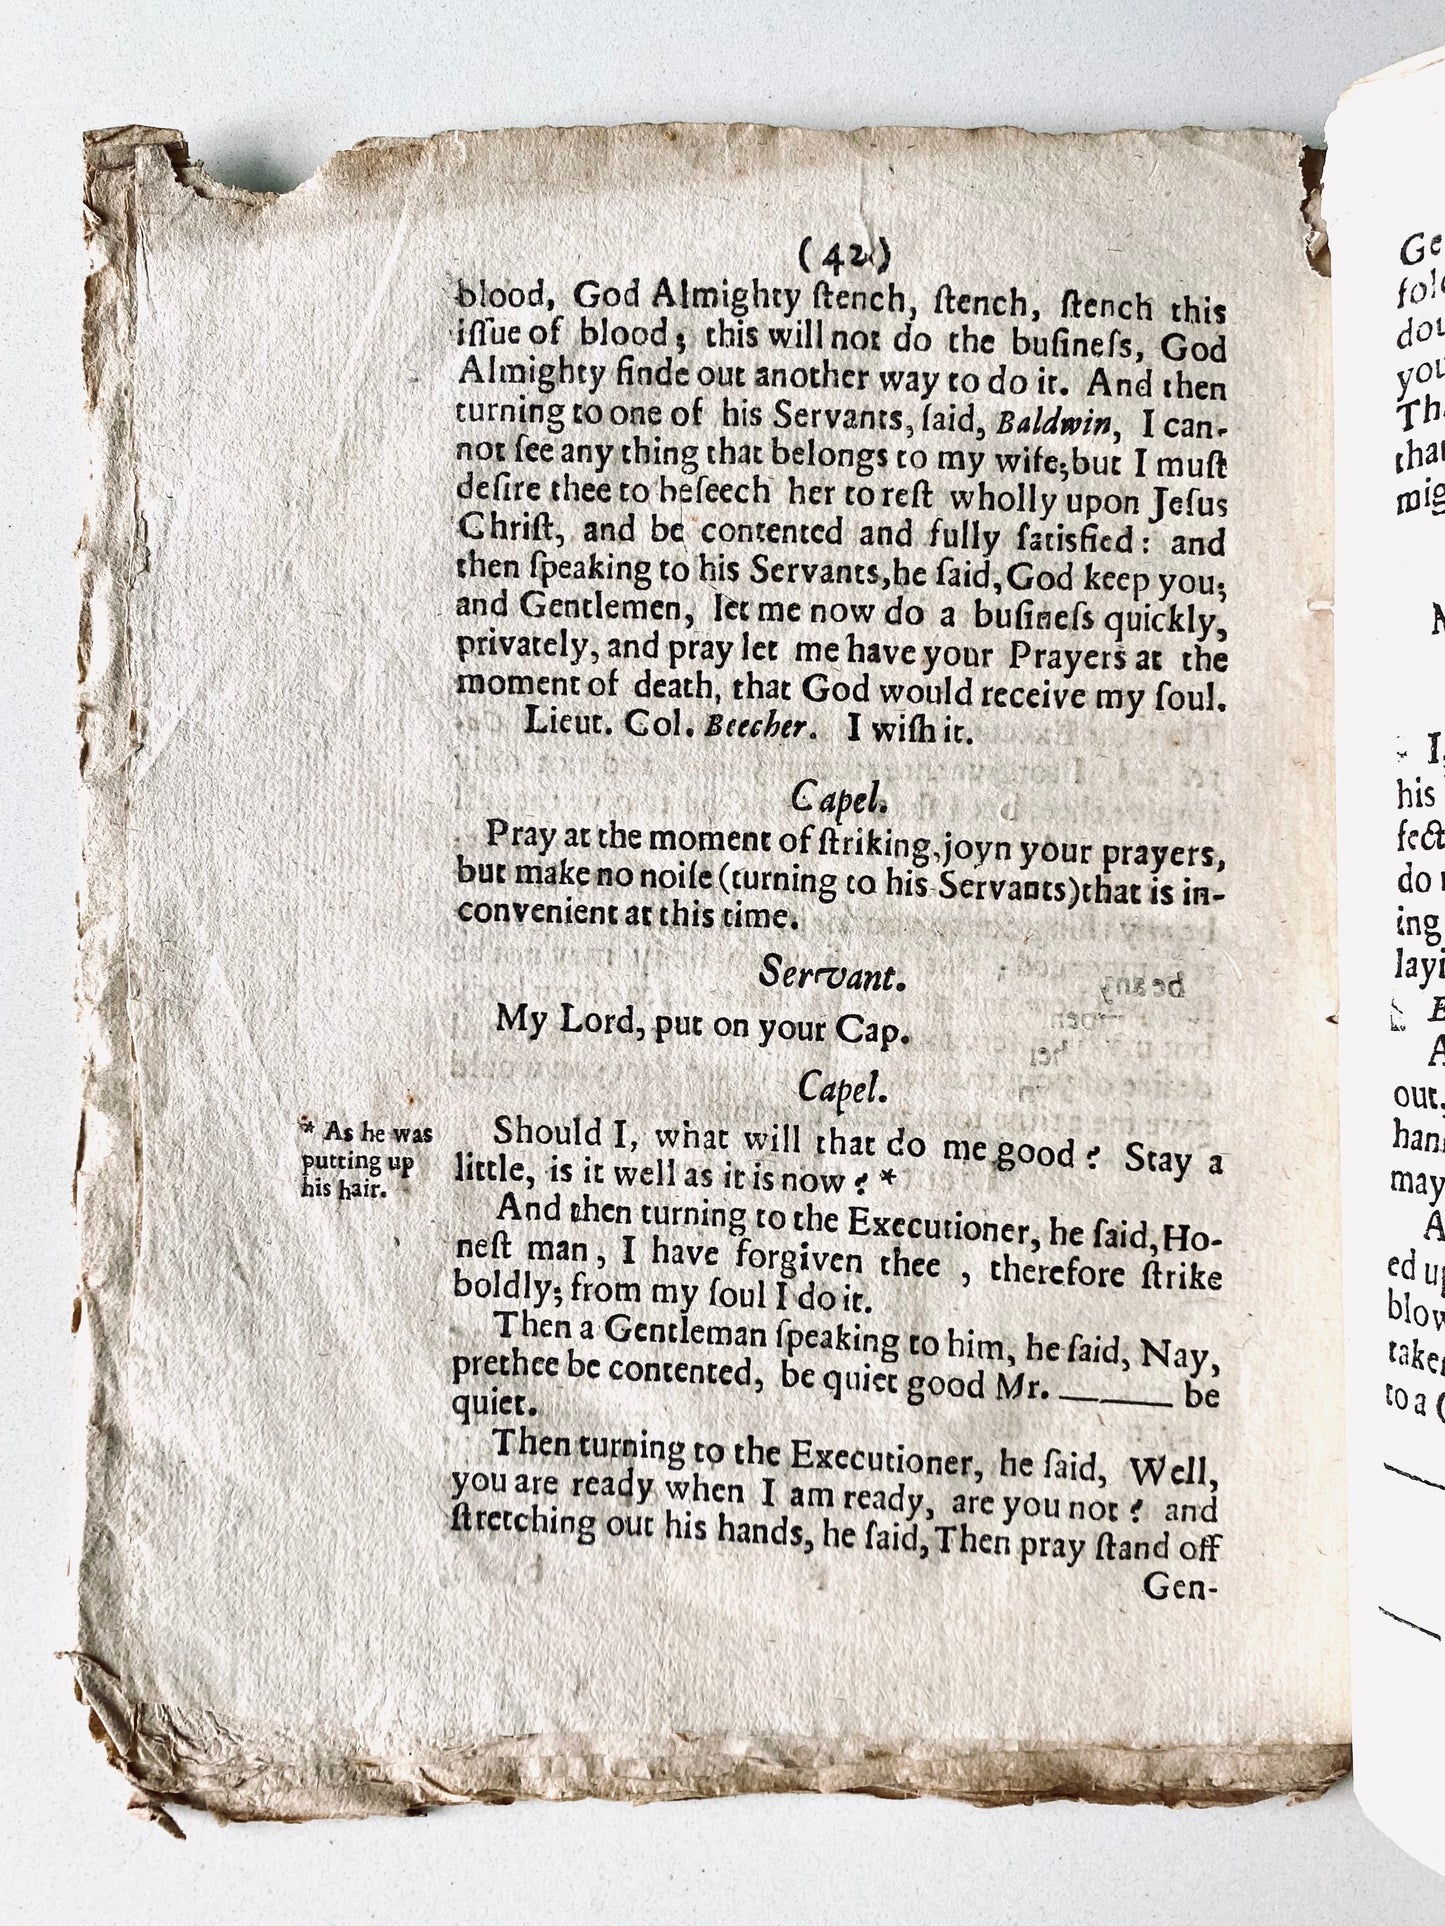 (42)
blood, God Almighty ſtench, ſtench, ſtench this
iſſue of blood; this will not do the buſineſs, God
Almighty finde out another way to do it. And then
turning to one of his Servants, ſaid, Baldwin, I can-
not ſee any thing that belongs to my wife; but I muſt
deſire thee to beſeech her to reſt wholly upon Jeſus
Chriſt, and be contented and fully ſatisfied: and
then ſpeaking to his Servants, he ſaid, God keep you;
and Gentlemen, let me now do a buſineſs quickly,
privately, and pray let me have your Prayers at the
moment of death, that God would receive my ſoul.
Lieut. Col. Beecher. I wiſh it.
Capel.
Pray at the moment of ſtriking, joyn your prayers,
but make no noiſe (turning to his Servants) that is in-
convenient at this time.
Servant.
My Lord, put on your Cap.
Capel.
Should I, what will that do me good? Stay a
little, is it well as it is now? *
* As he was
putting up
his hair.
And then turning to the Executioner, he ſaid, Ho-
neſt man, I have forgiven thee, therefore ſtrike
boldly; from my ſoul I do it.
Then a Gentleman ſpeaking to him, he ſaid, Nay,
prethee be contented, be quiet good Mr. ——— be
quiet.
Then turning to the Executioner, he ſaid, Well,
you are ready when I am ready, are you not? and
ſtretching out his hands, he ſaid, Then pray ſtand off
Gen-
Ge
fol
dou
you
Th
that
mig
I,
his
fect
do
ing
layi
out.
han
may
ed up
blow
take
to a